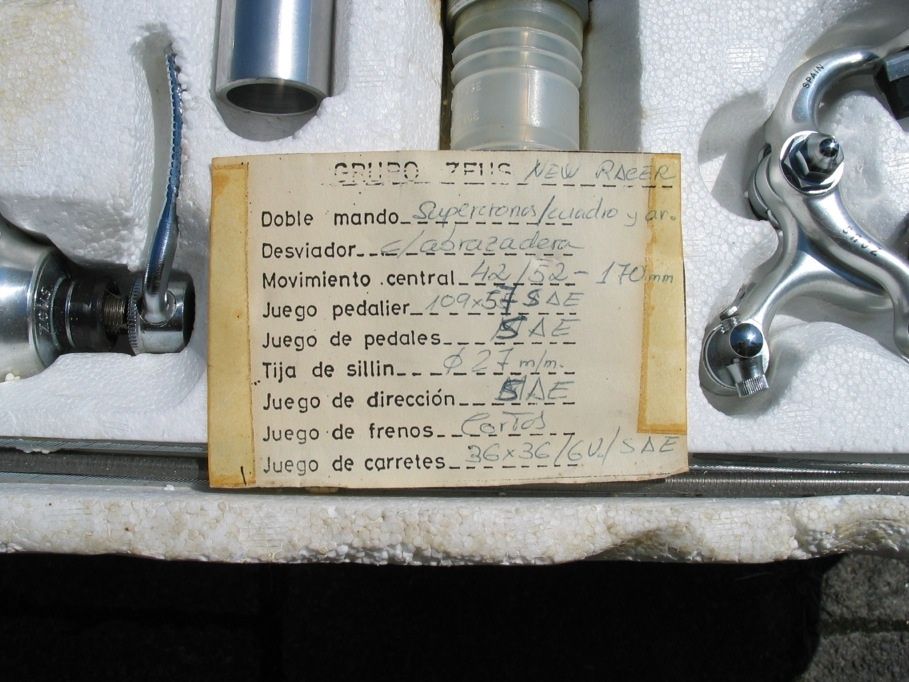 SPAIN
GRUPO ZEUS NEW RACER
Doble mando Supercronos/cuadro y ar.
Desviador c/abrazadera
Movimiento central 42/52 - 170 mm
Juego pedalier 109x57 SAE
Juego de pedales SAE
Tija de sillin Ø 27 m/m.
Juego de dirección SAE
Juego de frenos Cortos
Juego de carretes 36x36/6V/SAE